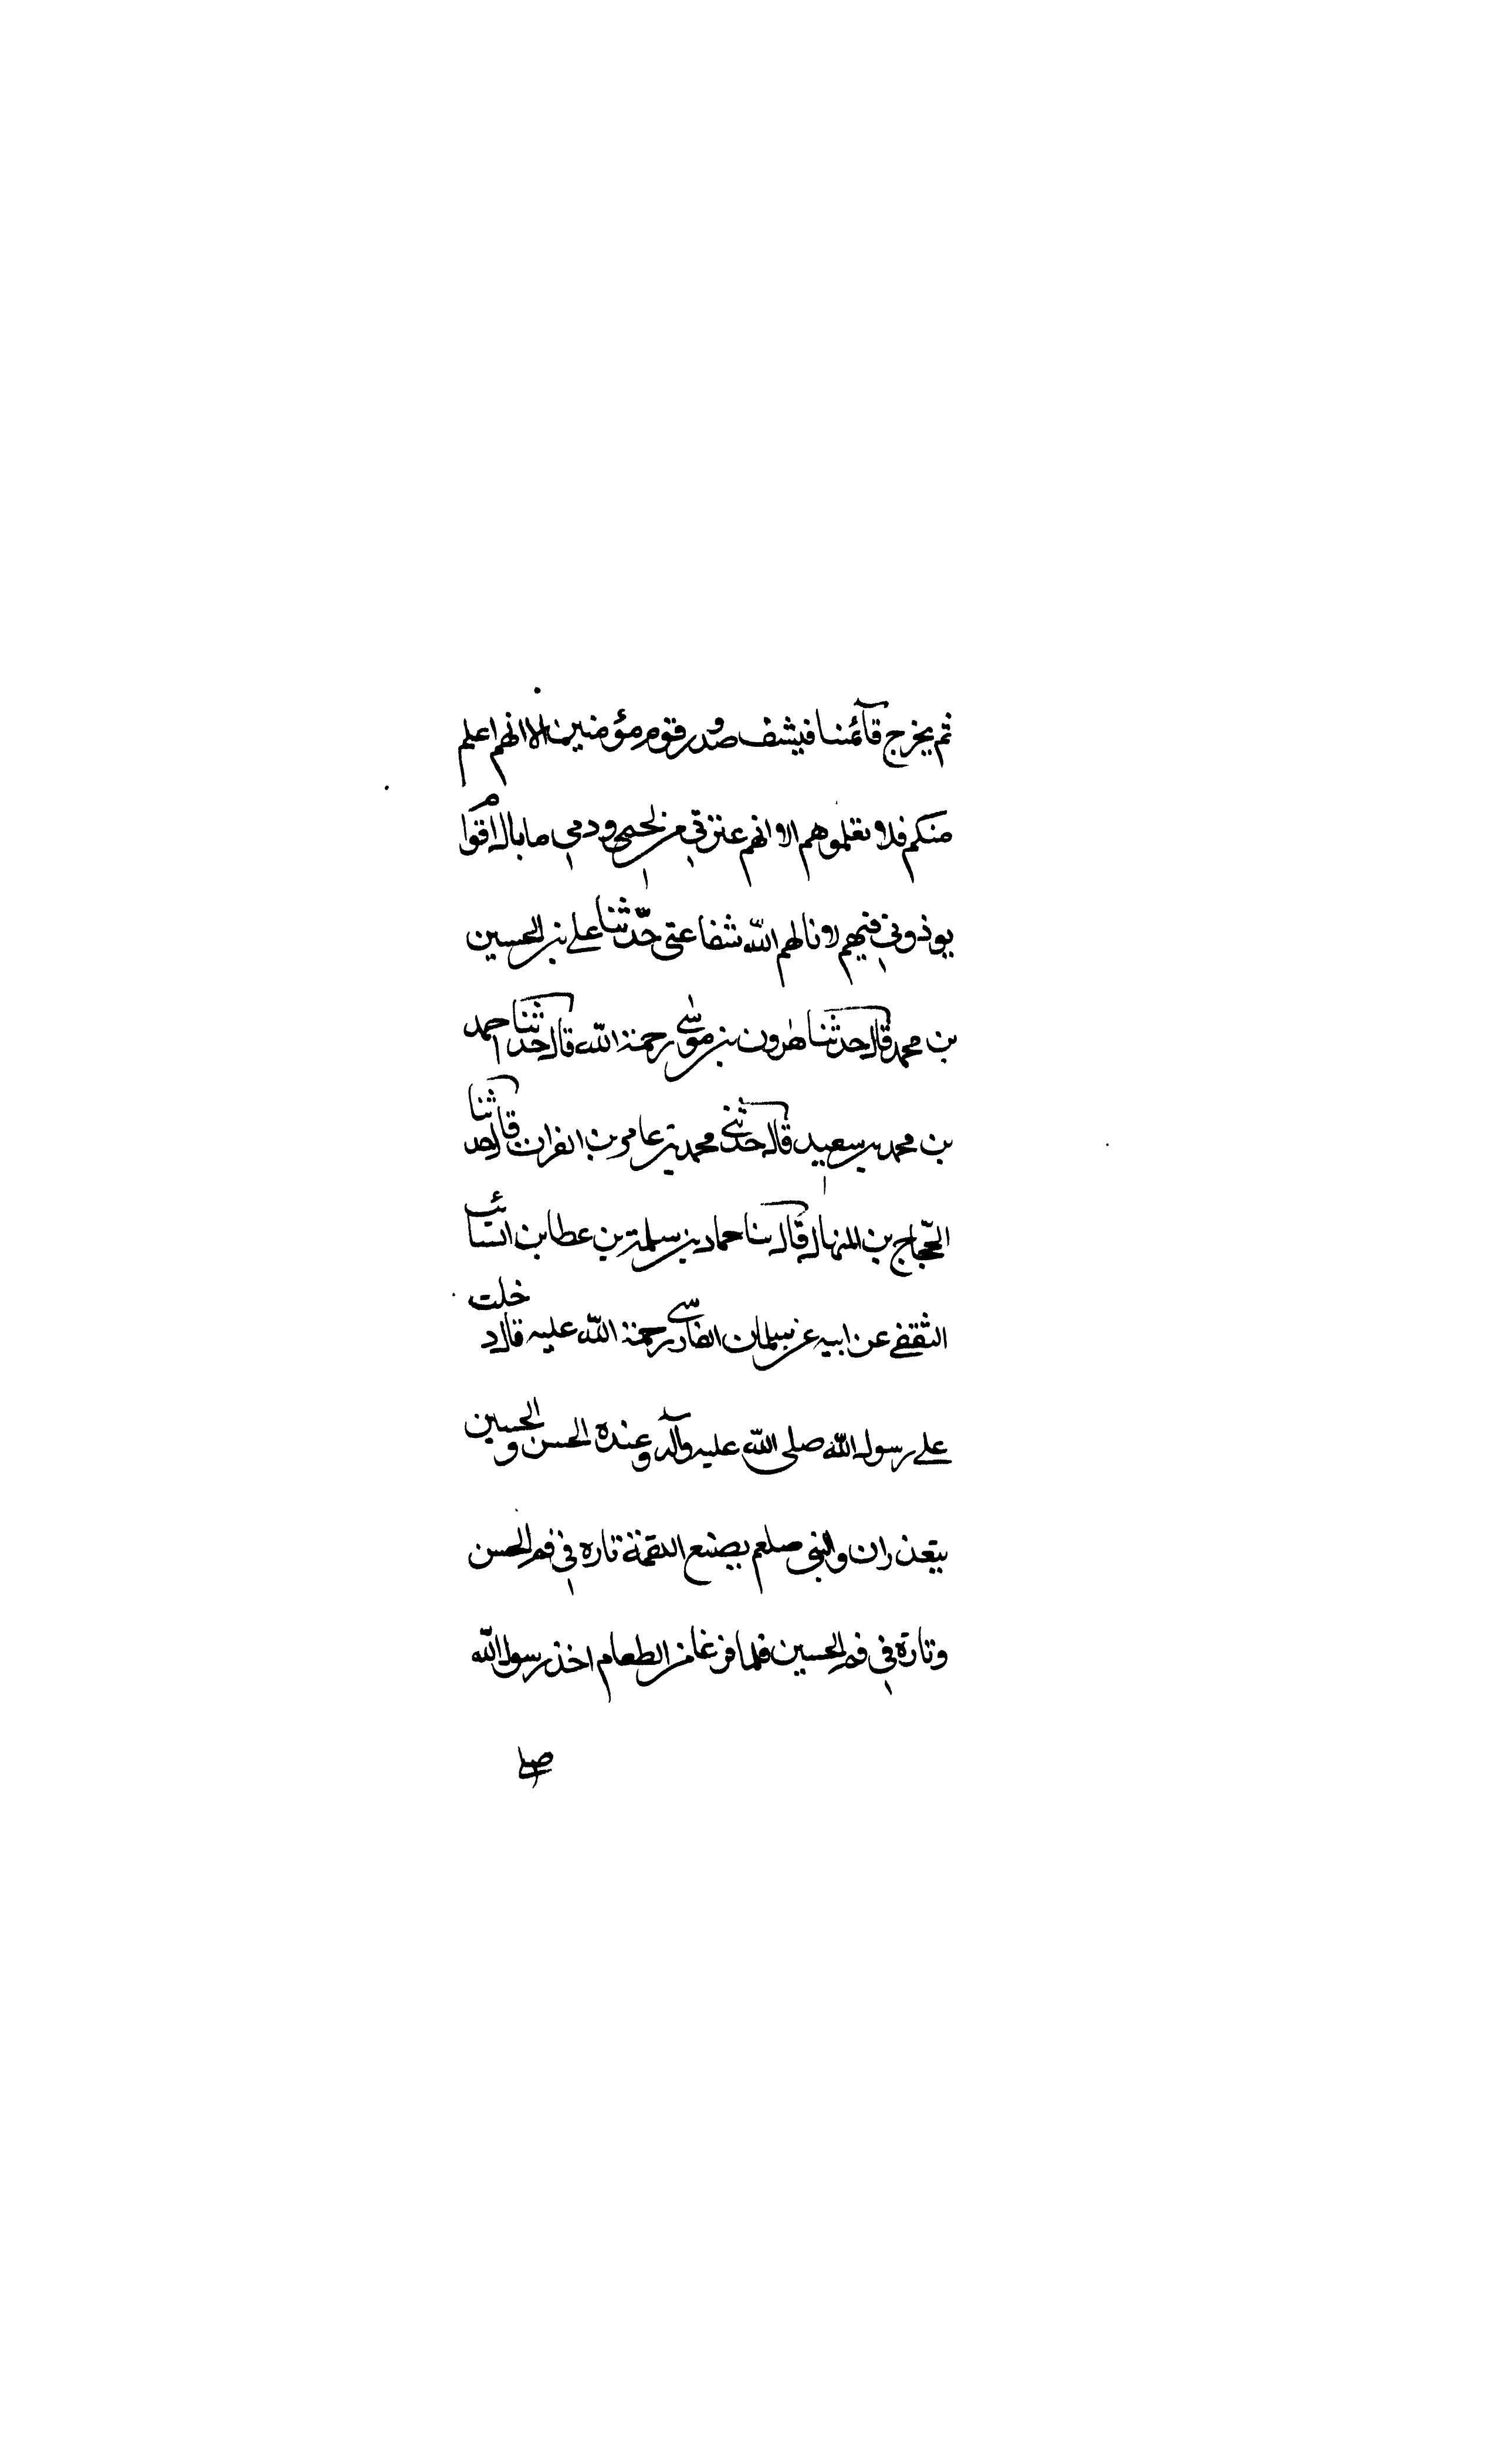 ثم يخرج قآئمنا فيشف صدور قوم مؤمنين الا انهم اعلم
منكم فلا تعلموهم الا انهم عترتي من لحمي ودمي ما بال اقوام
يوذوني فيهم لا نالهم الله شفاعتى حدّثنا على بن الحسين
بن محمد قال حدثنا هرون بن موسى رحمة الله قال حدثنا احمد
بن محمد بن سعيد قال حدثني محمد بن عامر بن الفرات قال حدثنا
الحجّاج بن المنهال قال ثنا حماد بن سلمة بن عطا بن السائب
الثقفى عن ابيه عن سلمان الفارسى رحمة الله عليه قال دخلت
على رسول الله صلى الله عليه وآله وعنده الحسن والحسين
يتغذيان والنبى صلعم يضع اللقمة تارة في فم الحسن
وتارة في فم الحسين فلما فرغا من الطعام اخذ رسول الله
صلى